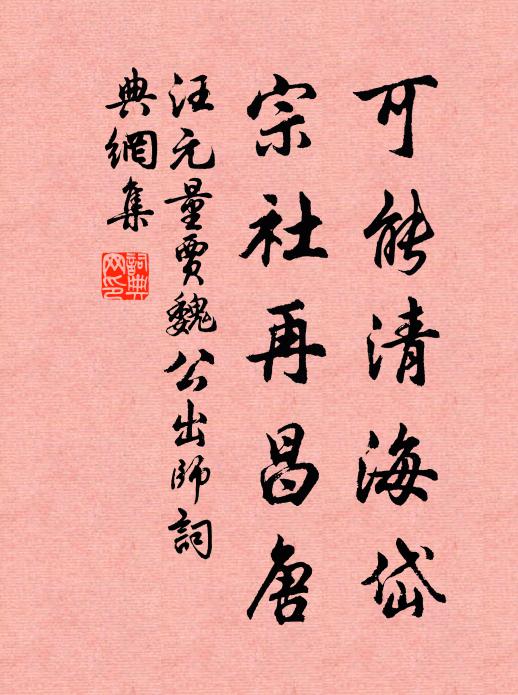 可能清海岱
宗社再昌唐
汪元量賈魏公出師詞
典網集
詞典網印